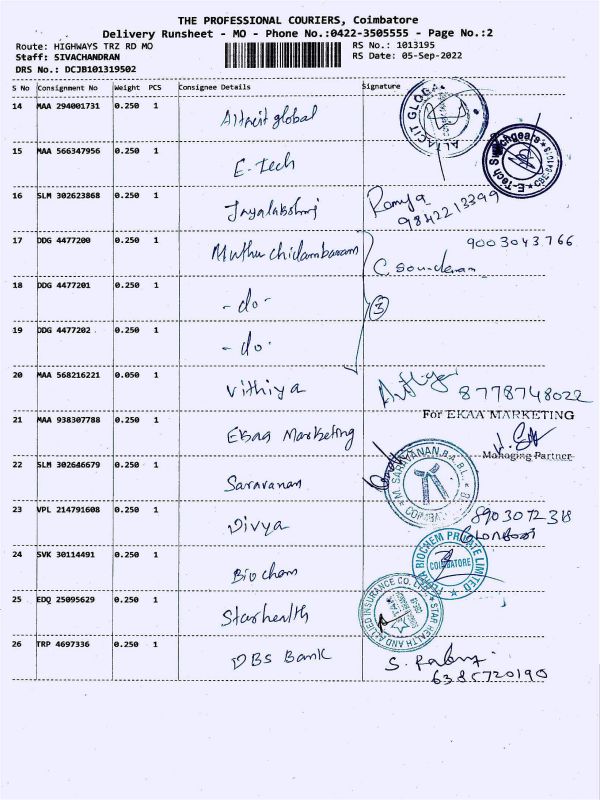 THE PROFESSIONAL COURIERS, Coimbatore
Delivery Runsheet - MO - Phone No.:0422-3505555 - Page No.:2
Route: HIGHWAYS TRZ RD MO RS No.: 1013195
Staff: SIVACHANDRAN RS Date: 05-Sep-2022
DRS No.: DCJB101319502
S No Consignment No Weight PCS Consignee Details Signature
14 MAA 294001731 0.250 1 Altacit global ALTACIT GLOBAL
15 MAA 566347956 0.250 1 E-Tech E-Tech Switchgears
16 SLM 302623868 0.250 1 Jayalakshmi Ramya 9842213399
17 DDG 4477200 0.250 1 Muthu chidambaram 9003043766
C. Sounderan
18 DDG 4477201 0.250 1 - do - 3
19 DDG 4477202 0.250 1 - do -
20 MAA 568216221 0.050 1 Vithiya 8778748022
For EKAA MARKETING
21 MAA 938307788 0.250 1 Ekaa Marketing
Managing Partner
22 SLM 302646679 0.250 1 Saravanan M. SARAVANAN, B.A., B.L. COIMBATORE
23 VPL 214791608 0.250 1 Divya 8903072318
24 SVK 30114491 0.250 1 Biochem BIOCHEM PRIVATE LIMITED COIMBATORE
25 EDQ 25095629 0.250 1 Starhealth STAR HEALTH AND ALLIED INSURANCE CO. LTD
26 TRP 4697336 0.250 1 DBS Bank S.
6385720190